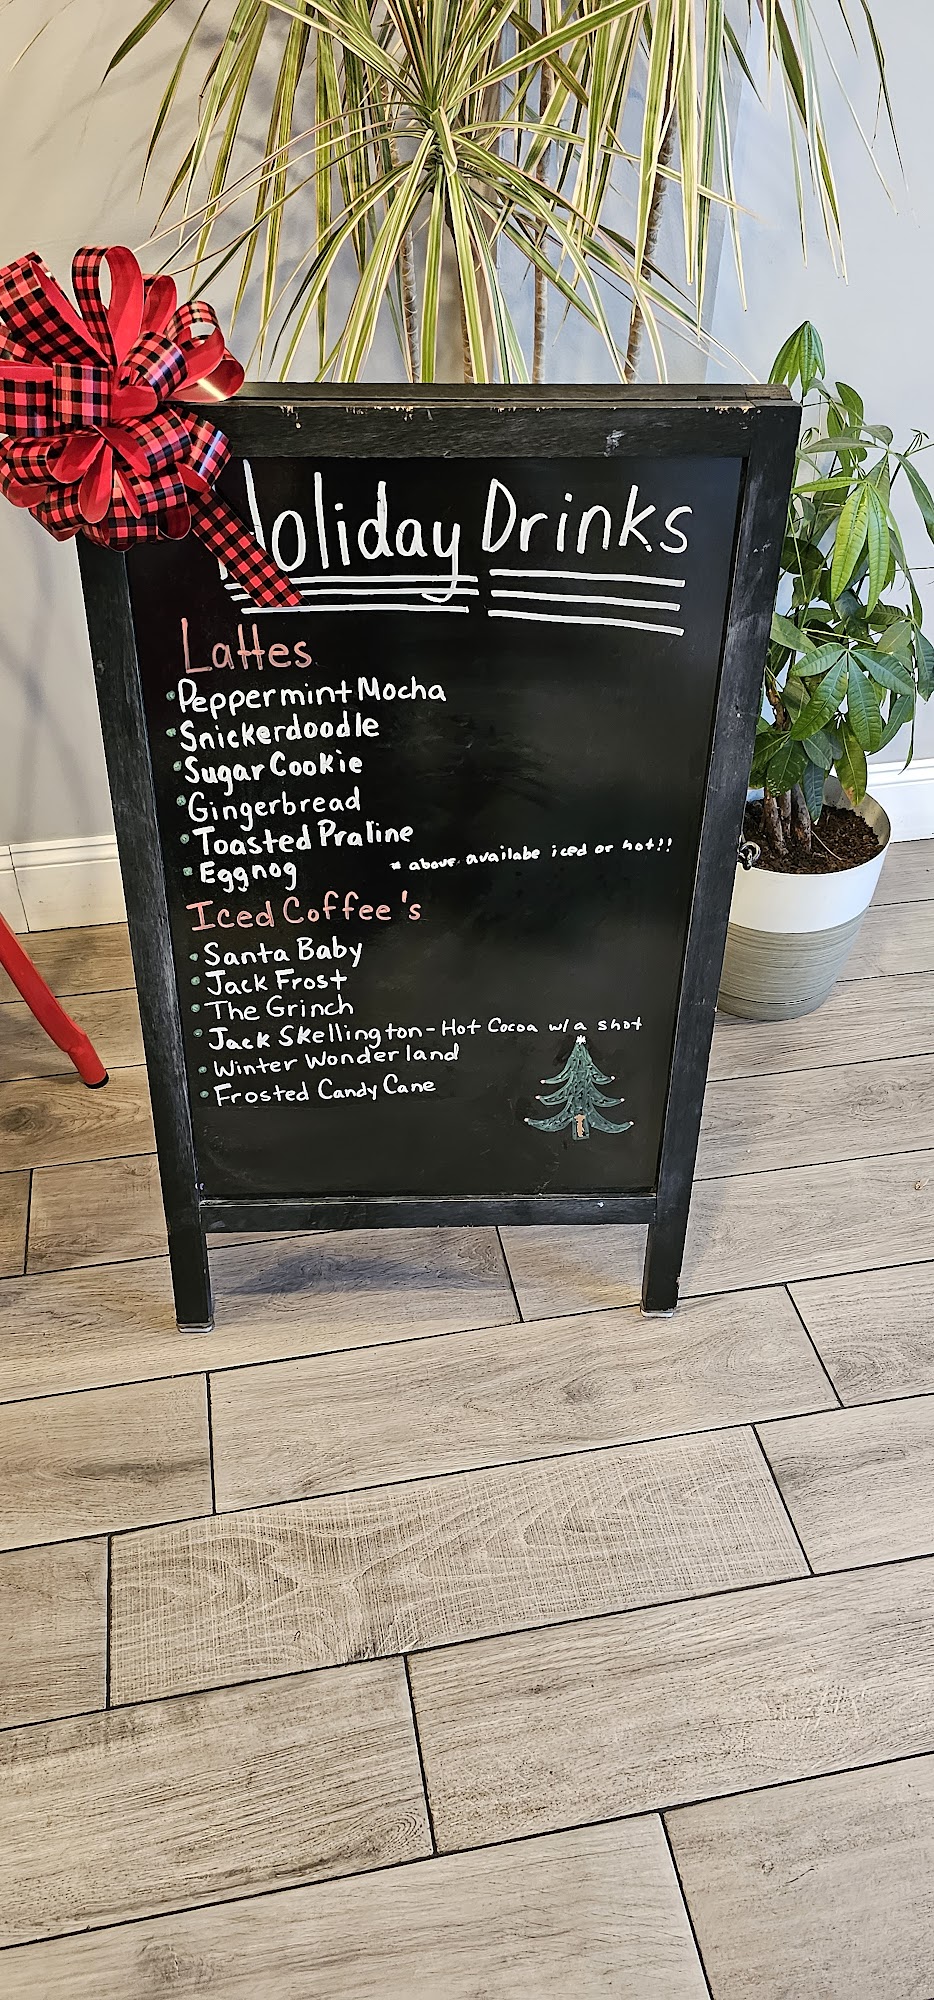 Holiday Drinks
Lattes
• Peppermint Mocha
• Snickerdoodle
• Sugar Cookie
• Gingerbread
• Toasted Praline
• Eggnog
* above availabe iced or hot!!
Iced Coffee's
• Santa Baby
• Jack Frost
• The Grinch
• Jack Skellington - Hot Cocoa w/ a shot
• Winter Wonderland
• Frosted Candy Cane